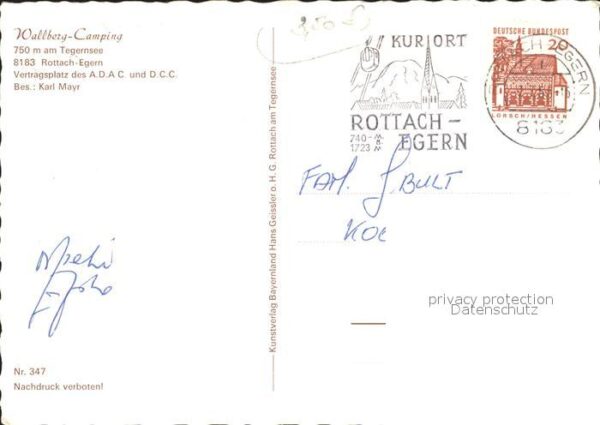 Wallberg-Camping
750 m am Tegernsee
8183 Rottach-Egern
Vertragsplatz des A.D.A.C. und D.C.C.
Bes.: Karl Mayr
Nr. 347
Nachdruck verboten!
Kunstverlag Bayernland Hans Geissler o.H.G. Rottach am Tegernsee
KURORT
ROTTACH-
EGERN
740-
1723
DEUTSCHE BUNDESPOST
20
LORSCH/HESSEN
EGERN
8183
FAM.
privacy protection
Datenschutz